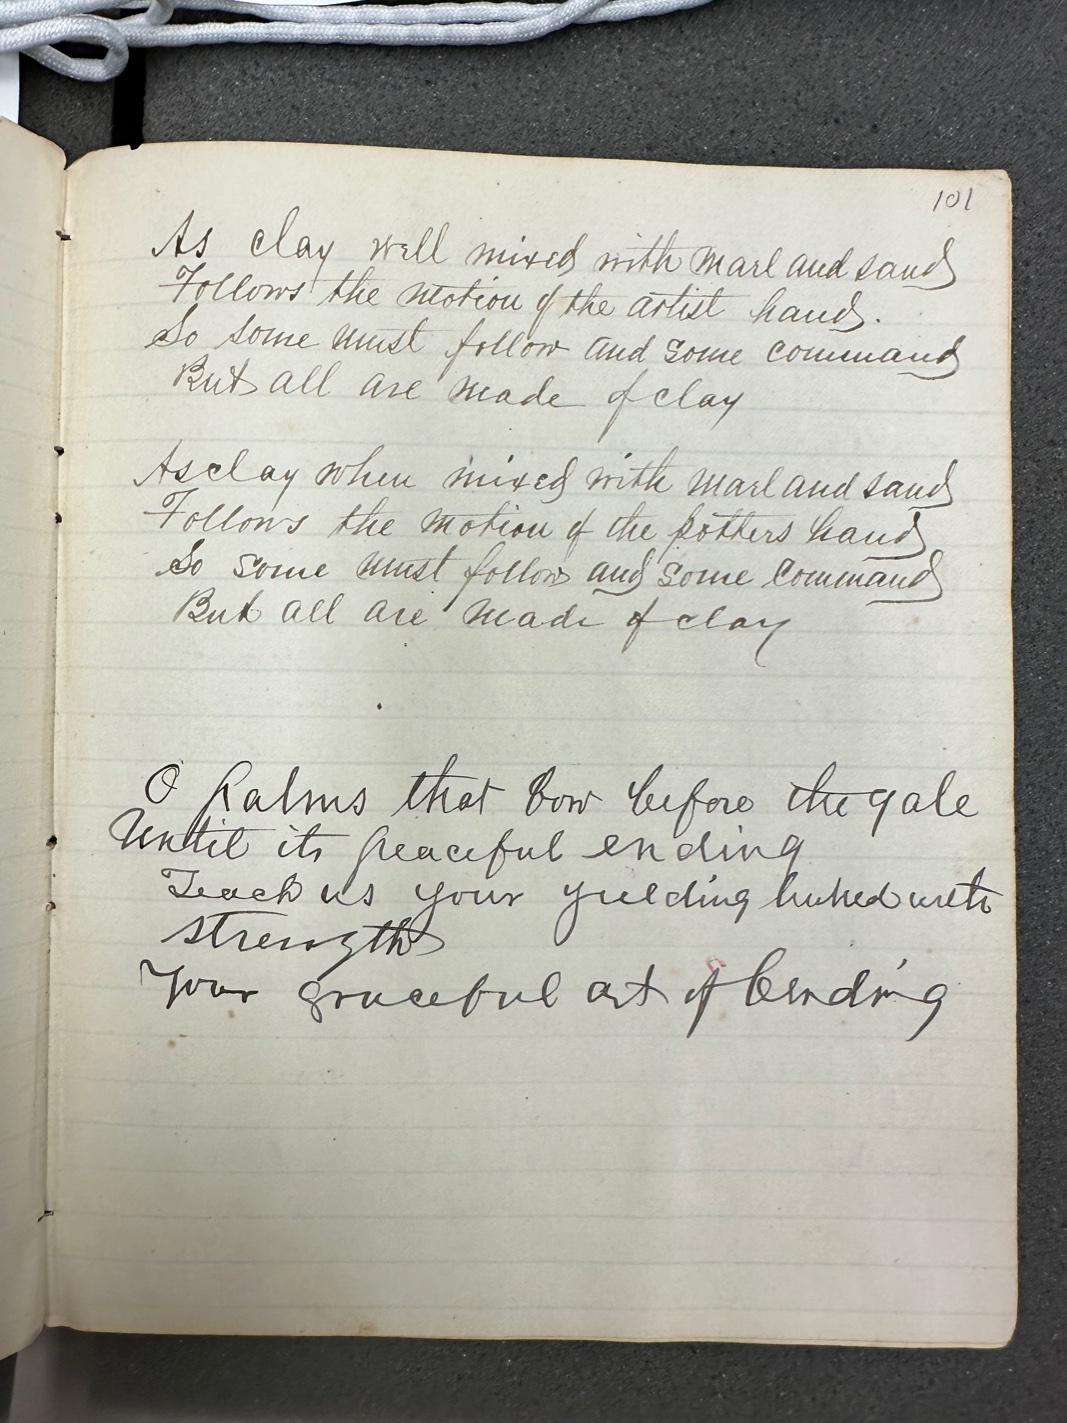 101
As clay well mixed with marl and sand
Follows the motion of the artist hand.
So some must follow and some command
But all are made of clay
As clay when mixed with marl and sand
Follows the motion of the potters hand
So some must follow and some command
But all are made of clay
O Palms that bow before the gale
Until its peaceful ending
Teach us your yielding linked with
strength
Your graceful art of bending